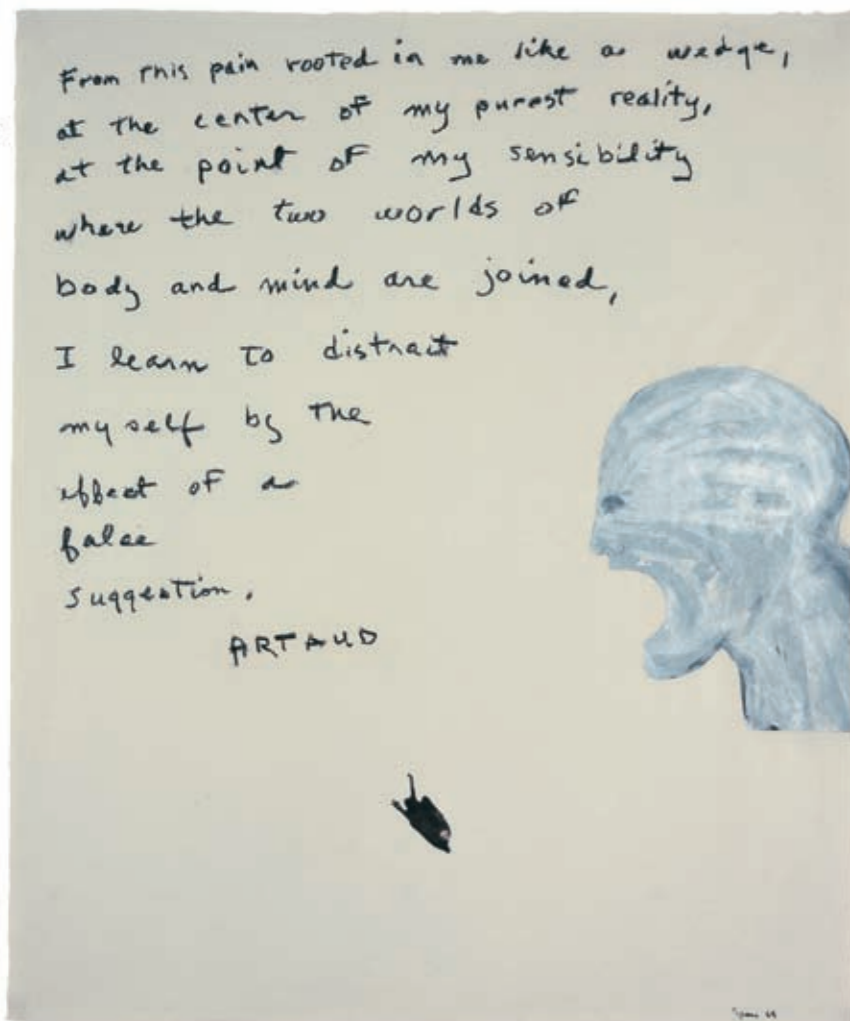 From This pain rooted in me like a wedge,
at the center of my purest reality,
at the point of my sensibility
where the two worlds of
body and mind are joined,
I learn to distract
myself by the
effect of a
false
suggestion.
ARTAUD